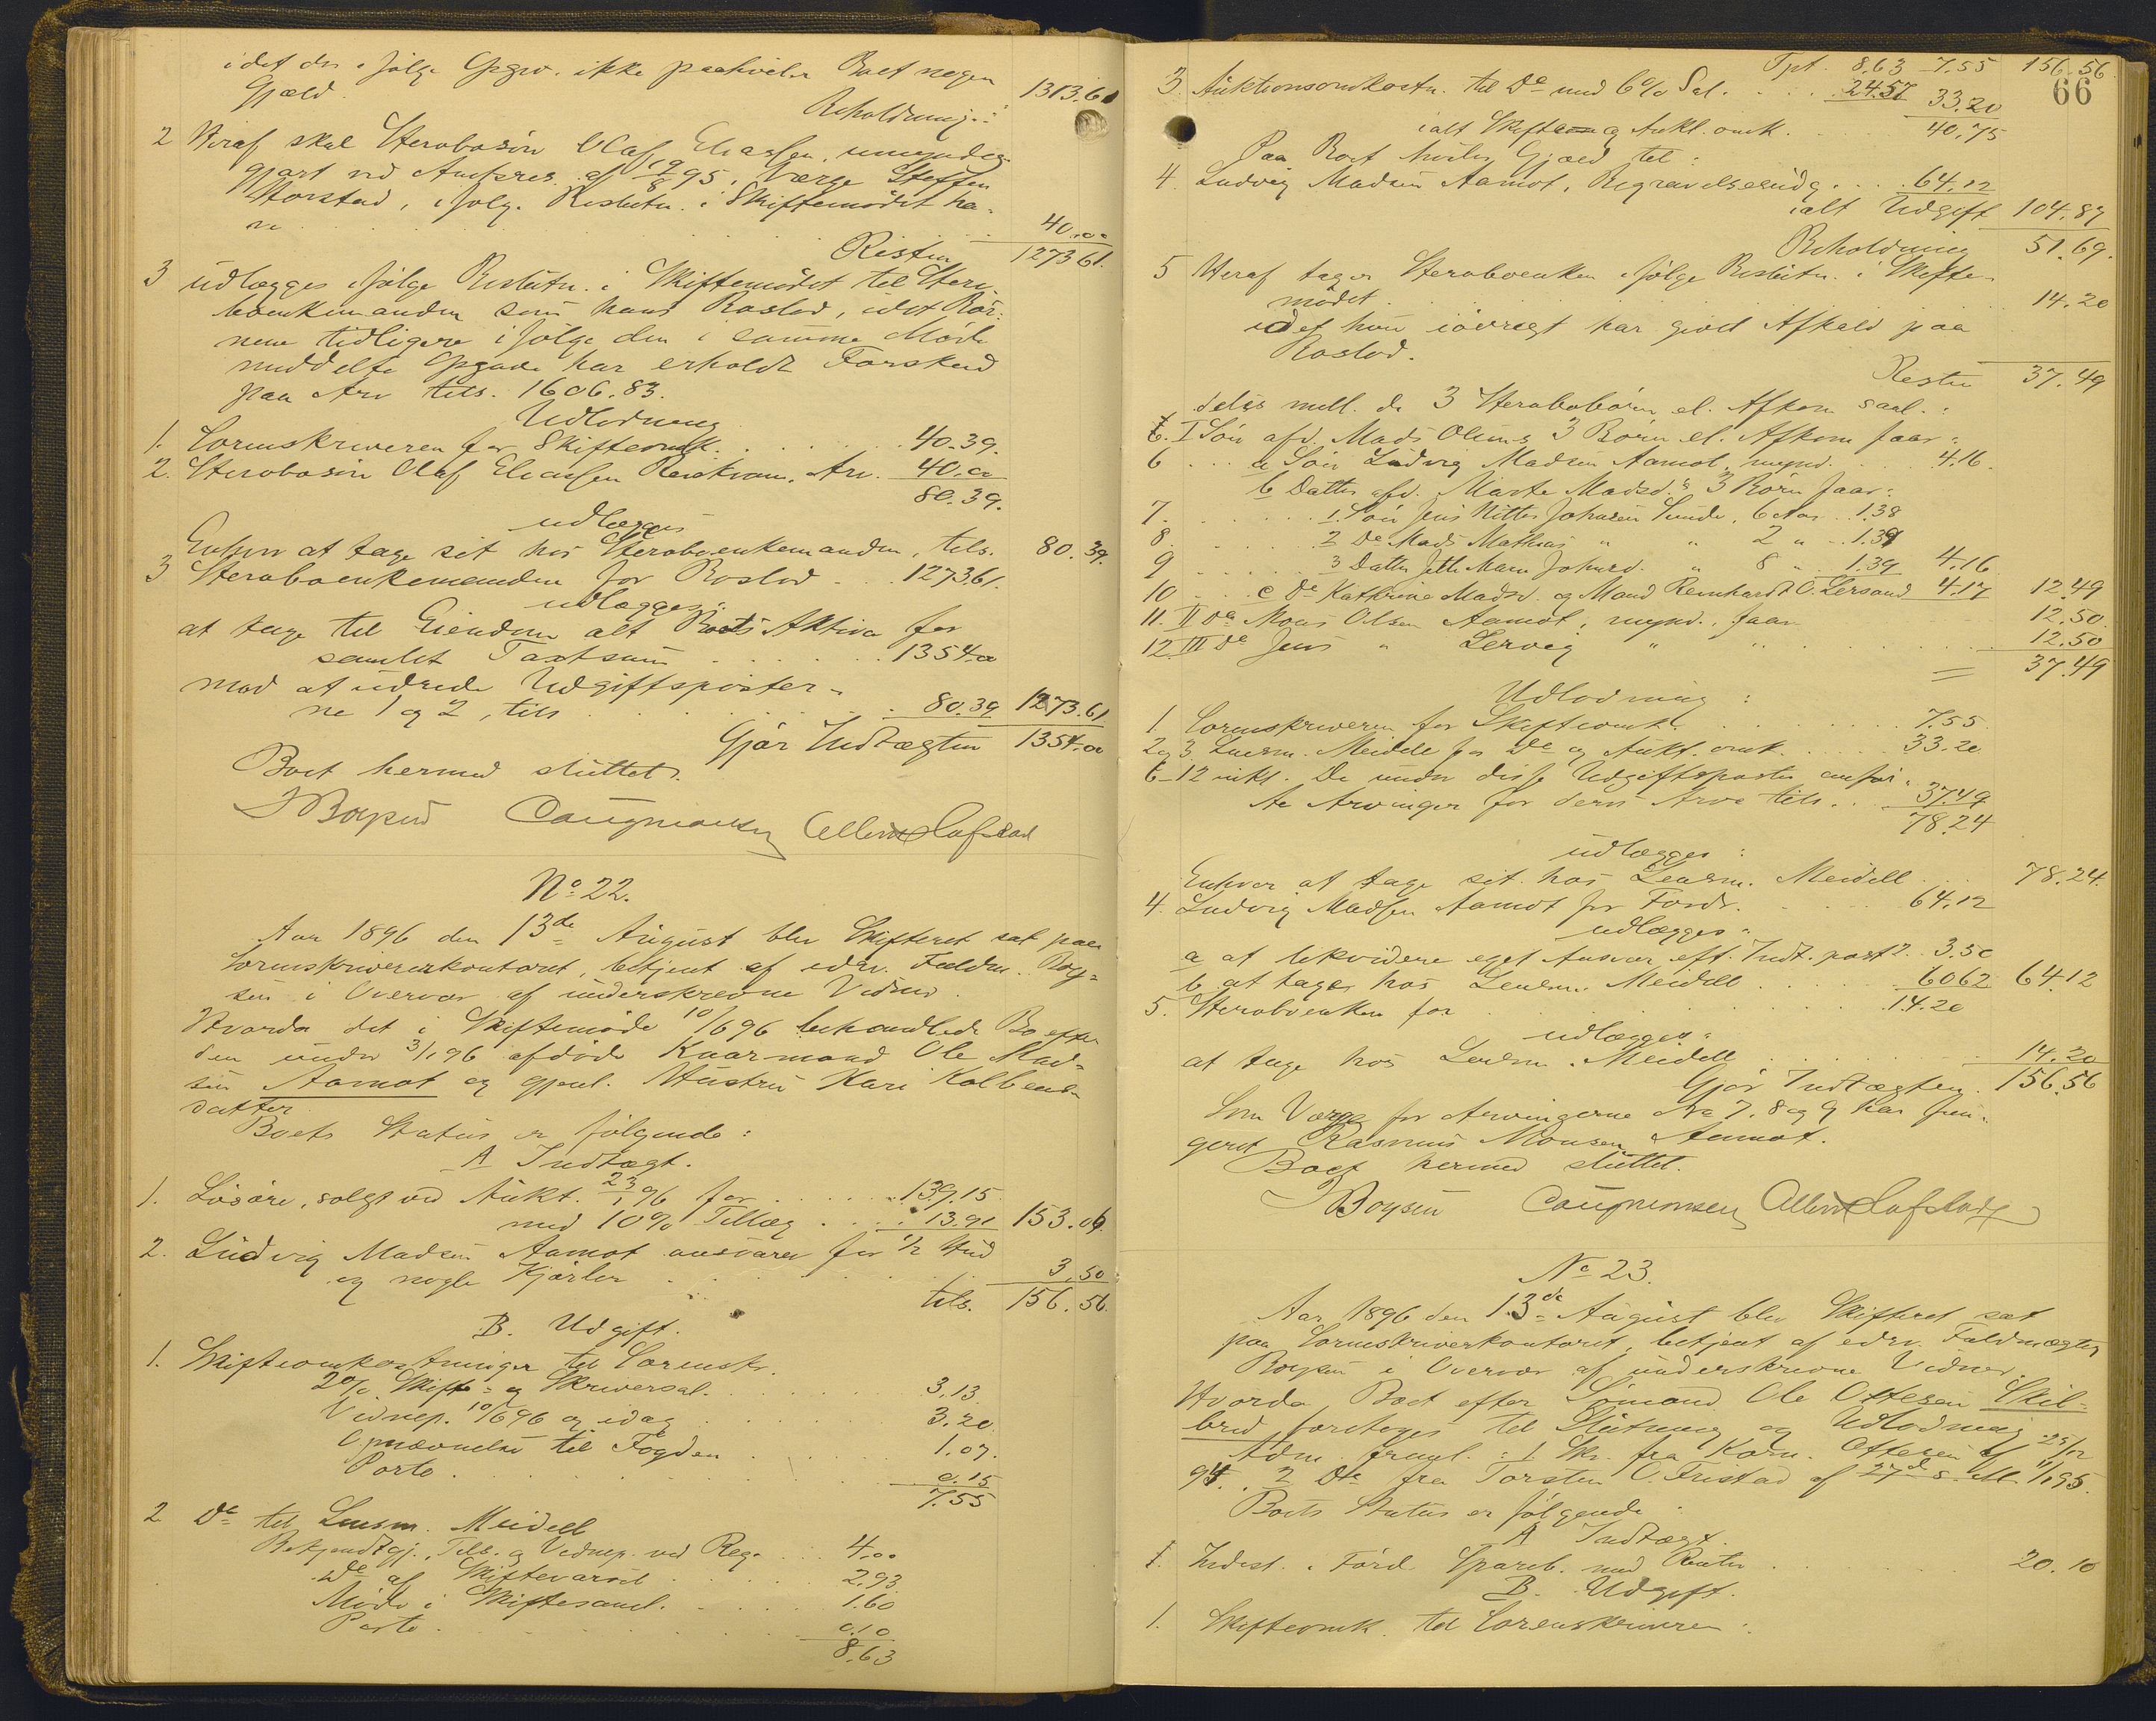 idet der ifølge Opgav. ikke paahviler Boet nogen
Gjæld.
Beholdning: 1313.61
2 Heraf skal Sterbosøn Olaf Eliassen, umyndig-
gjort ved Amtsres. af 19/8 95, Værge Steffen
Storstad, ifølg. Beslutn. i Skiftemødet ha-
ve . . . 40.00
Resten 1273 61.
3 udlægges ifølge Beslutn. i Skiftemødet til Sterv-
boenkemanden som hans Boslod, idet Bør-
nene tidligere ifølge den i samme Møde
meddelte Opgave har erholdt Forskud
paa Arv tils. 1606.83.
Udlodning
1. Sorenskriveren for Skifteomk. . . . 40.39.
2. Stervbosøn Olaf Eliassen Arv. 40.00
80.39.
udlægges
Enhver at tage sit hos Stervboenkemanden, tils. 80.39.
3 Stervboenkemanden for Boslod . . . 1273.61.
udlægges:
at tage til Eiendom alt Boets Aktiva for
samlet Taxtsum . . . . 1354.00
mod at udrede Udgiftsposter-
ne 1 og 2, tils . . . 80.39 1273.61
Gjør Indtægten 1354.00
Boet hermed sluttet.
J Boysen
No 22.
Aar 1896 den 13de August blev Skifteret sat paa
Sorenskriverkontoret, betjent af edsv. Fuldm. Boy-
sen i Overvær af underskrevne Vidner.
Hvorda det i Skiftemøde 10/6 96 behandlede Bo efter
den under 3/1 96 afdøde Kaarmand Ole Mad-
sen Aamot og gjenl. Hustru Kari Kolbens-
datter.
Boets Status er følgende:
A Indtægt.
1. Løsøre, solgt ved Aukt. 23/1 96 for . . . 139.15
med 10% Tillæg . . . 13.91 153.06
2. Ludvig Madsen Aamot ansvarer for 1/2 Hud
og nogle Kjørler . . . 3.50
tils. 156.56.
B. Udgift.
1. Skifteomkostninger til Sorenskr.
2% Skifte- og Skriversal. . . . 3.13
Vidnep. 10/6 96 og idag . . . 3.20
Opnævnelse til Fogden . . . 1.07.
Porto . . . 0.15
7.55
2 Do til Lensm. Meidell
Bekjendtgj., Tils. og Vidnep. ved Reg. . . . 4.00
Do af Skiftevarsel . . . 2.93
Møde i Skiftesaml. . . . 1.60
Porto . . . 0.10
8.63
66
Tpt. 8.63 7.55 156.56
3. Auktionsomkostn. til Do med 6% Sal. . . . 24.57 33.20
ialt Skifte og Aukt. omk. . . . 40.75
Paa Boet hviler Gjæld til:
4. Ludvig Madsen Aamot, Begravelsesudg. . . . 64.12
ialt Udgift 104.87
Beholdning 51.69.
5 Heraf tager Stervboenken ifølge Beslutn. i Skifte-
mødet . . . 14.20
idet hun iøvrigt har givet Afkald paa
Boslod.
Resten 37.49
deles mell. de 3 Stervbobørn el. Afkom saal.:
6. I Søn afd. Mads Olsens 3 Børn el. Afkom faar:
6 . . . a Søn Ludvig Madsen Aamot, mynd. . . . 4.16.
b Datter afd. Marte Madsd.s 3 Børn faar:
7. . . . 1. Søn Jens Nitter Johnsen Sunde, 6 Aar . . 1.38
8 . . . 2 Do Mads Mathias " " 2 " . . 1.39
9 . . . 3 Datter Marie Johnsd. " 8 " . . 1.39 4.16
10 . . . c Do Kathrine Madsd. og Mand Reinhardt O. Lersand 4.17 12.49
11. II Do Mons Olsen Aamot, mynd., faar 12.50.
12. III Do Jens " Lervig " " . . . 12.50
= 37.49
Udlodning:
1. Sorenskriveren for Skifteomk. . . . 7.55
2 og 3 Lensm. Meidell for Do og Aukt. omk. . . . 33.20
6-12 inkl. De under disse Udgiftsposter anfør-
te Arvinger for deres Arve tils. . . 37.49
78.24
udlægges:
Enhver at tage sit hos Lensm. Meidell . . . 78.24.
4. Ludvig Madsen Aamot for Fordr. . . . 64.12
udlægges:
a at likvidere eget Ansvar eft. Indt. post 2. . 3.50
b at tage hos Lensm. Meidell . . . 60 62 64.12
5. Stervboenken for . . . 14.20
udlægges:
at tage hos Lensm. Meidell . . . 14.20
Gjør Indtægten . 156.56
Som Værge for Arvingerne No 7, 8 og 9 har fun-
geret Rasmus Monsen Aamot.
Boet hermed sluttet.
J Boysen
No 23.
Aar 1896 den 13de August blev Skifteret sat
paa Sorenskriverkontoret, betjent af edsv. Fuldmægtig
Boysen i Overvær af underskrevne Vidner.
Hvorda Boet efter Sømand Ole Ottesen Skil-
bred foretoges til Slutning og Udlodning
Adm. freml.: 1 Skr. fra Korn. Ottesen af 29/12
94. 2 Do fra Torsten O. Fristad af 11/1 95.
Boets Status er følgende:
A Indtægt.
1. Indest. i Førd. Spareb. med Renter . . . 20.10
B. Udgift.
1. Skifteomk. til Sorenskriveren: